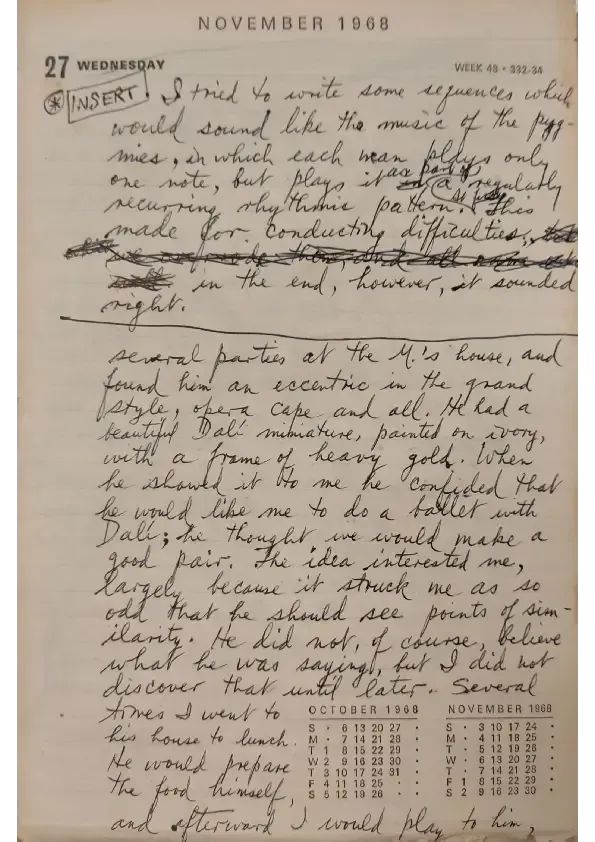 NOVEMBER 1968
27 WEDNESDAY WEEK 48 • 332-34
* INSERT. I tried to write some sequences which
would sound like the music of the pyg-
mies, in which each man plays only
one note, but plays it as part of a regularly
recurring rhythmic pattern. This
made for conducting difficulties,
in the end, however, it sounded
right.
several parties at the M.'s house, and
found him an eccentric in the grand
style, opera cape and all. He had a
beautiful Dalí miniature, painted on ivory,
with a frame of heavy gold. When
he showed it to me he confided that
he would like me to do a ballet with
Dalí; he thought we would make a
good pair. The idea interested me,
largely because it struck me as so
odd that he should see points of sim-
ilarity. He did not, of course, believe
what he was saying, but I did not
discover that until later. Several
times I went to
his house to lunch.
He would prepare
the food himself,
and afterward I would play to him,
OCTOBER 1968
S • 6 13 20 27 •
M • 7 14 21 28 •
T 1 8 15 22 29 •
W 2 9 16 23 30 •
T 3 10 17 24 31 •
F 4 11 18 25 • •
S 5 12 19 26 • •
NOVEMBER 1968
S • 3 10 17 24 •
M • 4 11 18 25 •
T • 5 12 19 26 •
W • 6 13 20 27 •
T • 7 14 21 28 •
F 1 8 15 22 29 •
S 2 9 16 23 30 •